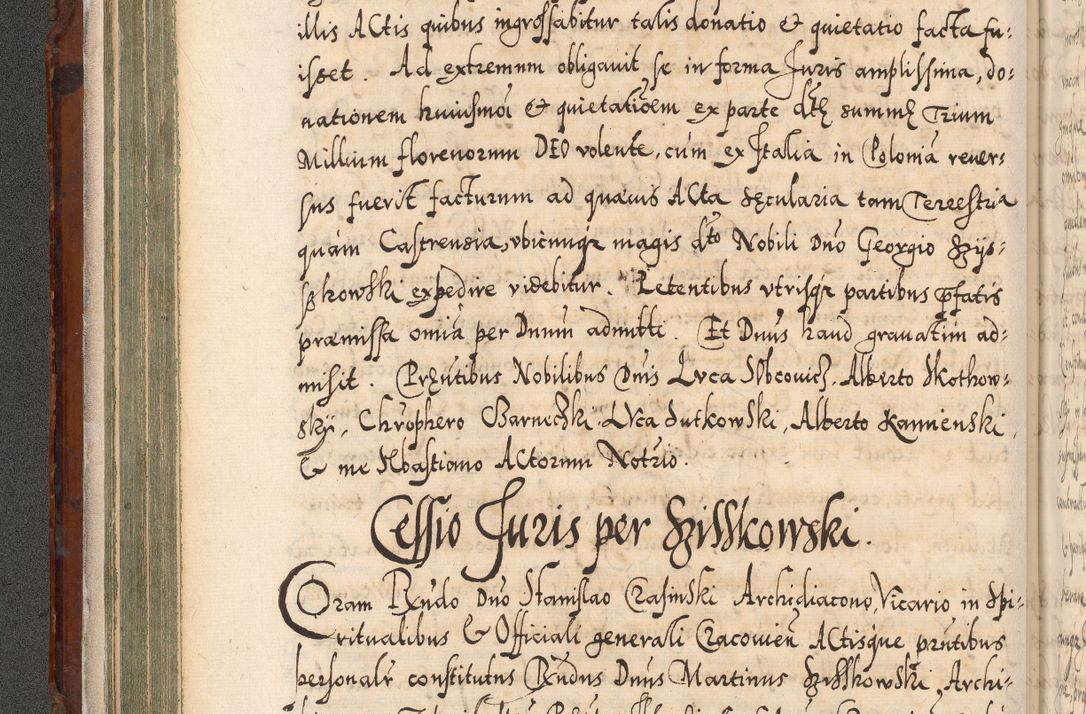 illis Actis quibus ingrossabitur talis donatio & quietatio facta fu:
isset. Ad extremum obligavit se in forma Juris amplissima, do:
nationem huiusmoi & quietatioem ex parte dtę summę Trium
Millium florenorum DEO volente, cum ex Italia in Polonia rever:
sus fuerit facturum ad quavis Acta sęcularia tam Terrestria
quam Castrensia, ubicunqz magis dto Nobili Dno Georgio Szys:
szkowski expedire videbitur. Petentibus utrisqz partibus pfatis
præmissa omia per Dnum admitti. Et Dnus haud gravatim ad:
misit. Prżntibus Nobilibus Dnis Luca Slbcovicz, Alberto Skothow:
skÿ, Chrophero Czarneczki, Luca Sutkowski, Alberto Kamienski,
& me Sbastiano Actorum Notrio.
Cessio Juris per Szisskowski.
Coram Rxndo Dno Stanislao Crasinski Archidiacono, Vicario in Spi:
ritualibus & Officiali generali Cracovien Actisque prntibus
personalr constitutus Rxndus Dnus Martinus Szysskowski, Archi: